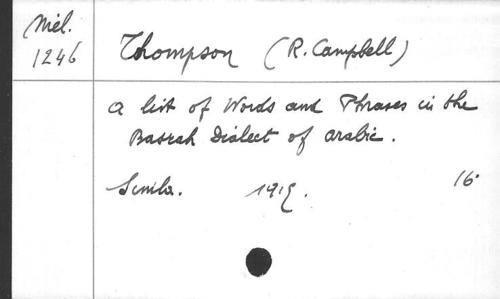 Mél.
1246
Thompson (R. Campbell)
A list of Words and Phrases in the
Basrah Dialect of Arabic.
Simla. 1919. 16°